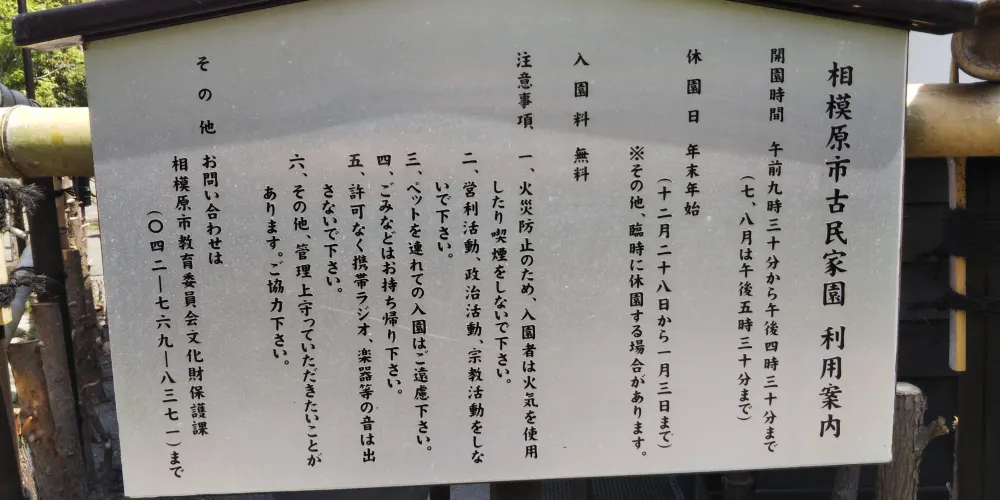 相模原市古民家園 利用案内
開園時間 午前九時三十分から午後四時三十分まで
(七、八月は午後五時三十分まで)
休園日 年末年始
(十二月二十八日から一月三日まで)
※その他、臨時に休園する場合があります。
入園料 無料
注意事項 一、火災防止のため、入園者は火気を使用
したり喫煙をしないで下さい。
二、営利活動、政治活動、宗教活動をしな
いで下さい。
三、ペットを連れての入園はご遠慮下さい。
四、ごみなどはお持ち帰り下さい。
五、許可なく携帯ラジオ、楽器等の音は出
さないで下さい。
六、その他、管理上守っていただきたいことが
あります。ご協力下さい。
その他 お問い合わせは
相模原市教育委員会文化財保護課
(〇四二―七六九―八三七一)まで